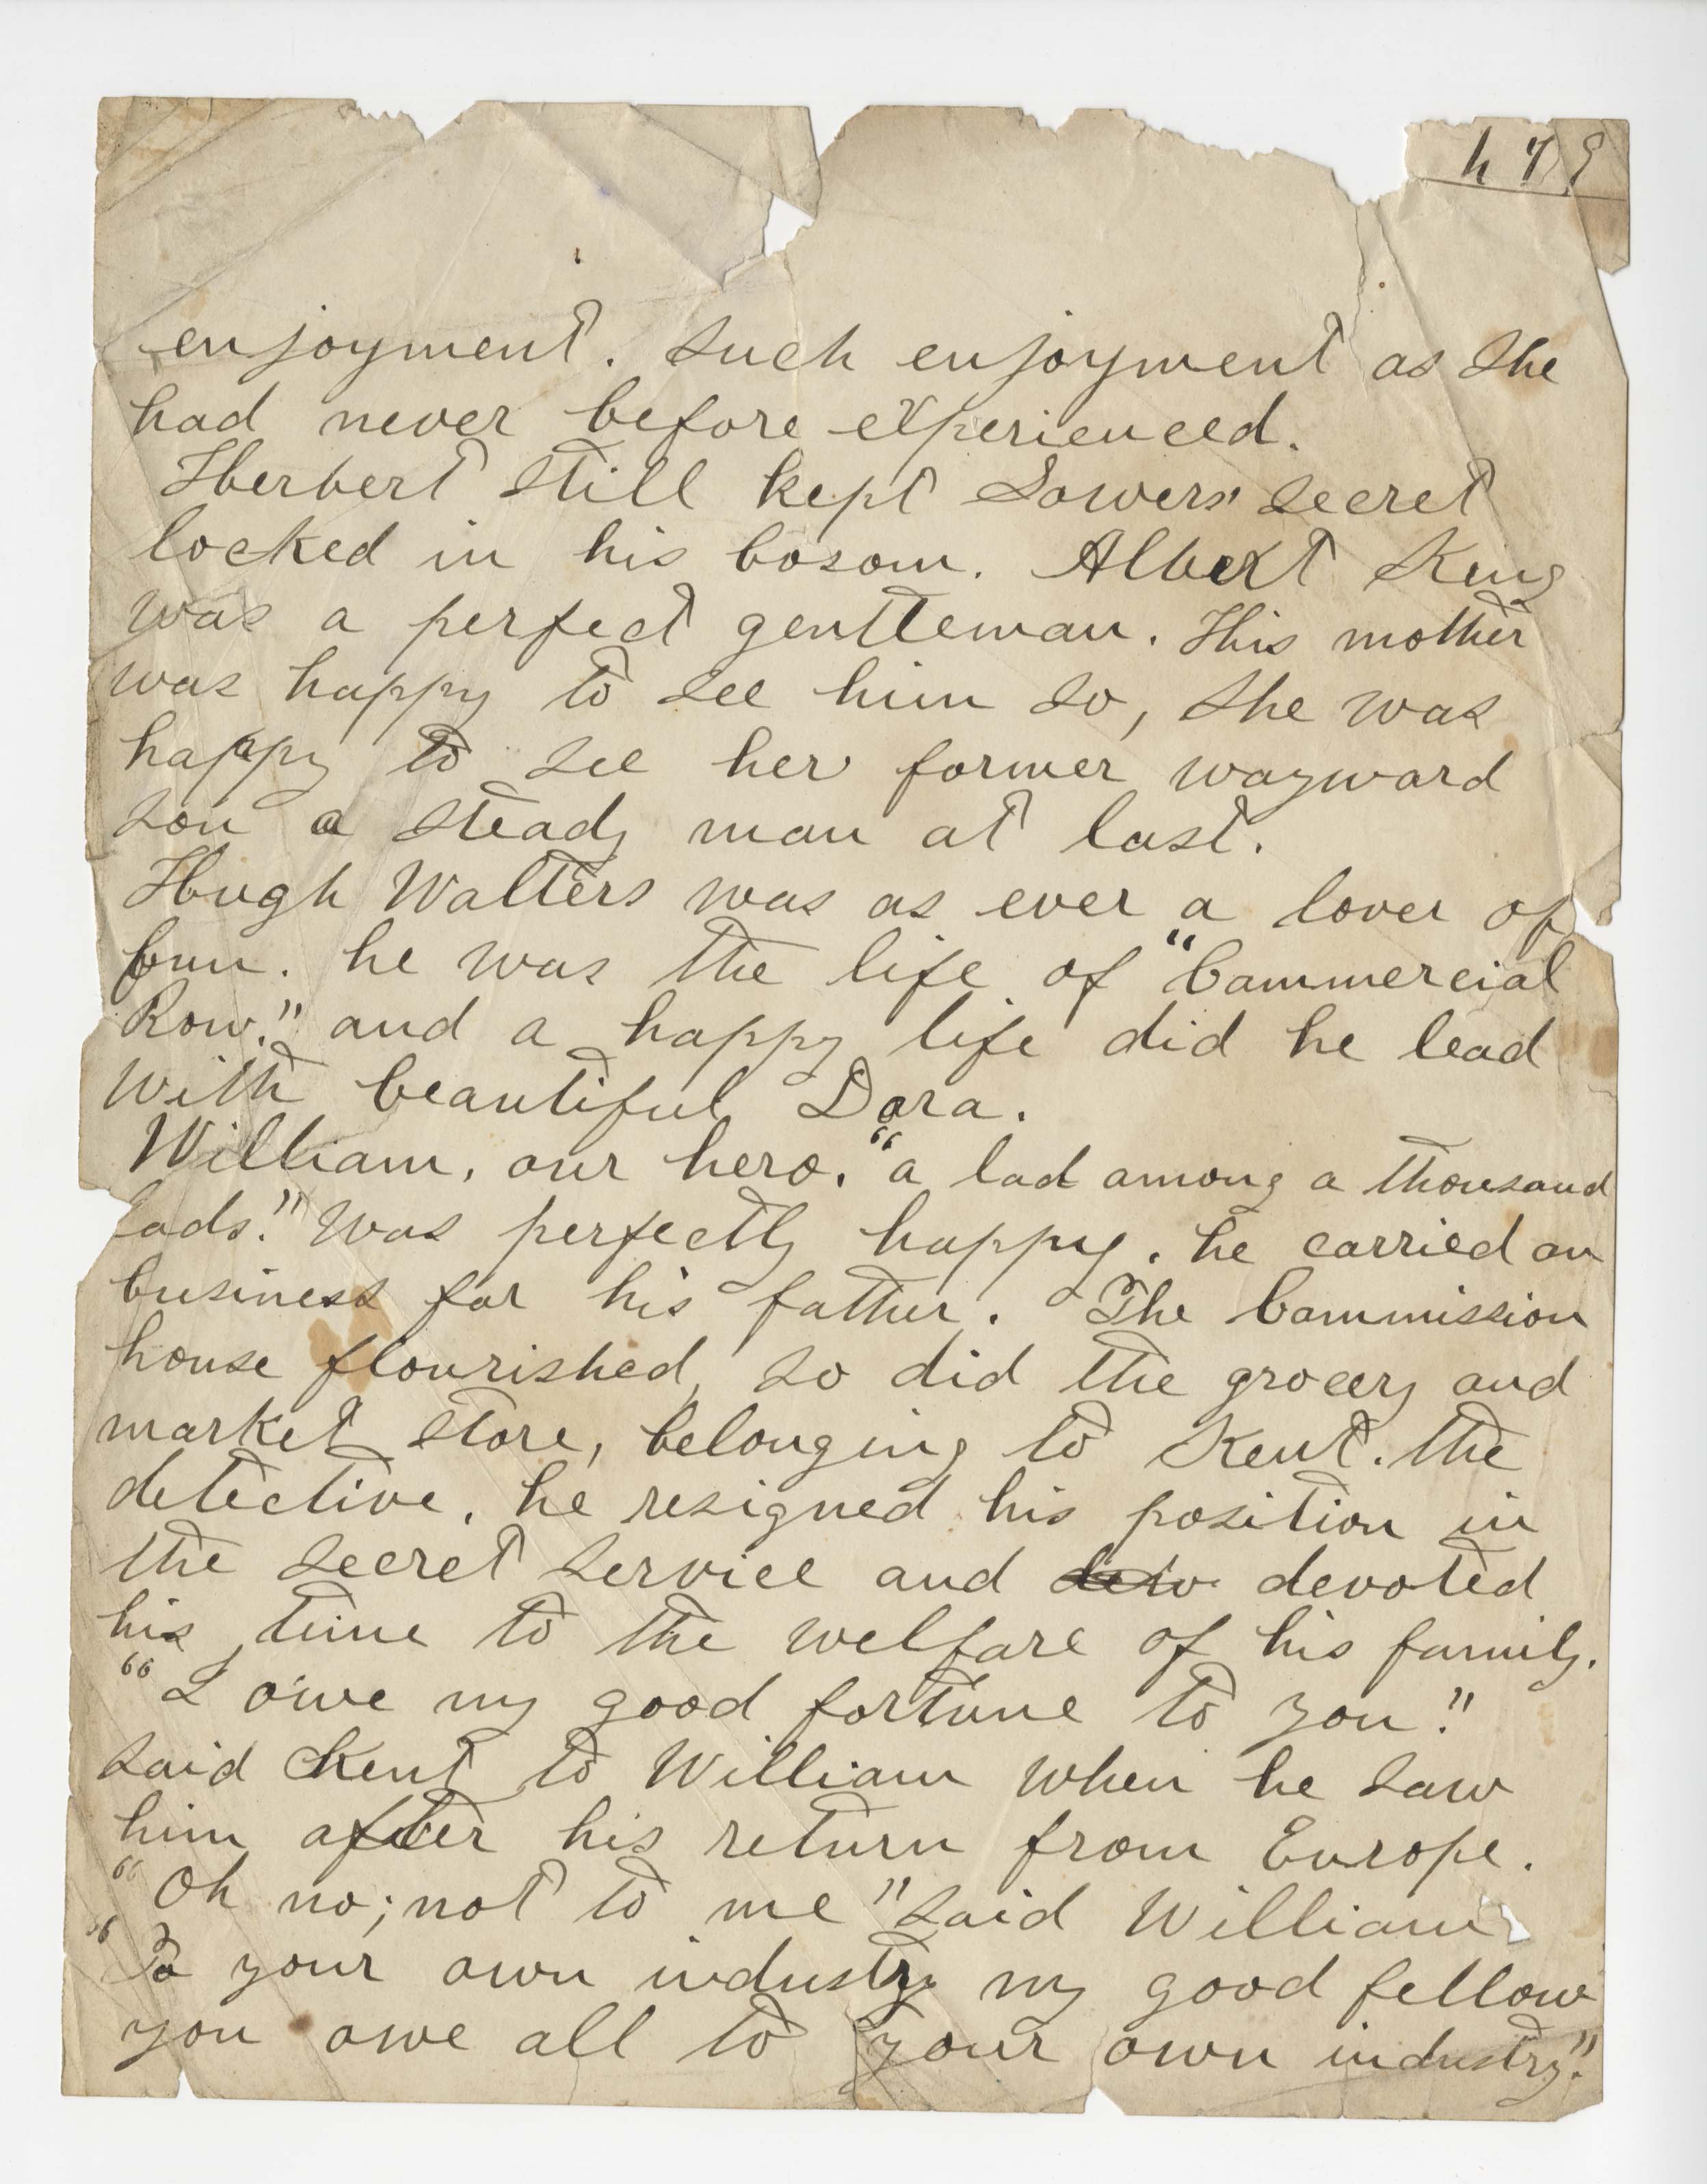 479
enjoyment. Such enjoyment as she
had never before experienced.
Herbert still kept Sowers' secret
locked in his bosom. Albert King
was a perfect gentleman. His mother
was happy to see him so, she was
happy to see her former wayward
son a steady man at last.
Hugh Walters was as ever a lover of
fun. he was the life of "Commercial
Row." and a happy life did he lead
with beautiful Dora.
William, our hero, "a lad among a thousand
lads." was perfectly happy. he carried on
business for his father. The Commission
house flourished, so did the grocery and
market store, belonging to Kent. the
detective, he resigned his position in
the secret service and dev devoted
his time to the welfare of his family.
"I owe my good fortune to you."
said Kent to William when he saw
him after his return from Europe.
"Oh no; not to me" said William
"To your own industry my good fellow
you owe all to your own industry."